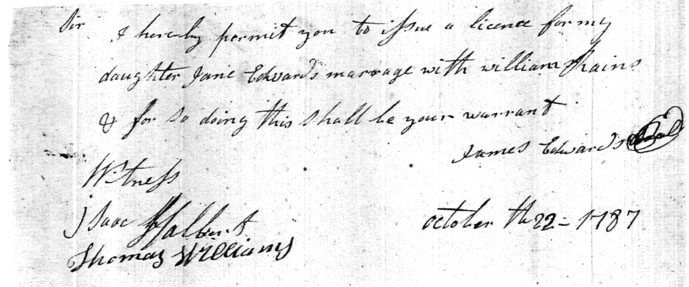 Sir I hereby permit you to issue a licence for my
daughter Jane Edwards marrage with william Rains
& for so doing this shall be your warrant
James Edwards Seal
Witness
Isaac Halbert
October th 22 - 1787
Thomas Williams